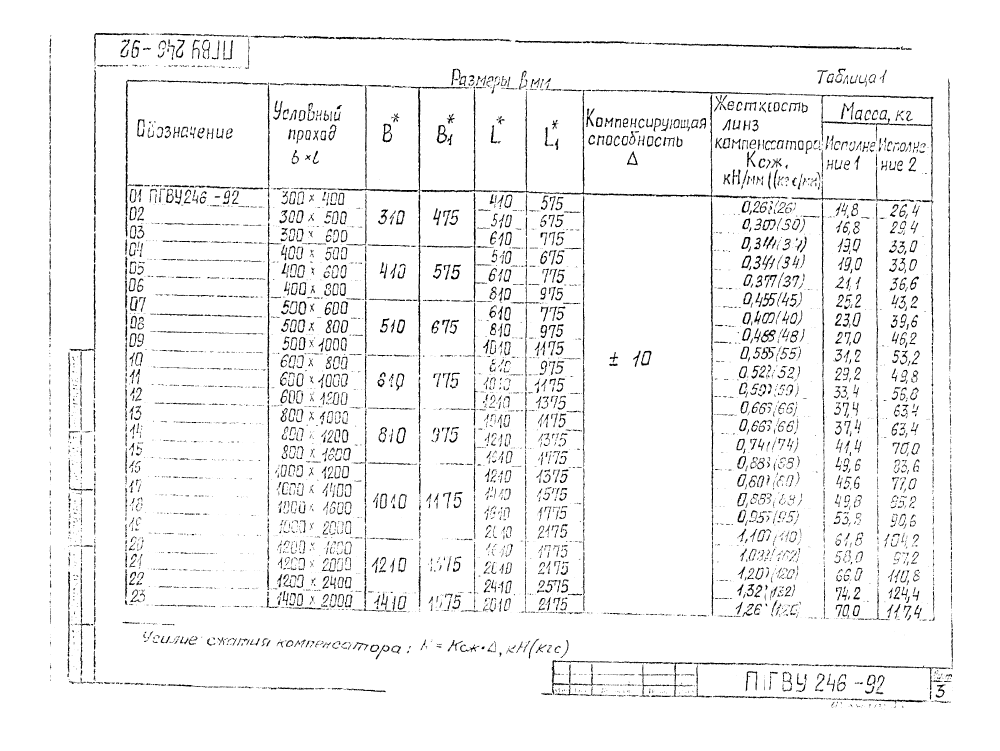 ПГВУ 246-92
Размеры в мм
Таблица 1
Обозначение | Условный проход b×l | B* | B₁* | L* | L₁* | Компенсирующая способность Δ | Жесткость линз компенсатора Ксж, кН/мм (кгс/мм) | Масса, кг Исполнение 1 | Исполнение 2
01 ПГВУ246-92 | 300 × 400 | 310 | 475 | 410 | 575 | ± 10 | 0,263(26) | 14,8 | 26,4
02 | 300 × 500 | 510 | 675 | 0,300(30) | 16,8 | 29,4
03 | 300 × 600 | 610 | 775 | 19,0 | 33,0
04 | 400 × 500 | 410 | 575 | 510 | 675 | 0,344(34) | 19,0 | 33,0
05 | 400 × 600 | 610 | 775 | 0,377(37) | 21,1 | 36,6
06 | 400 × 800 | 810 | 975 | 0,455(45) | 25,2 | 43,2
07 | 500 × 600 | 510 | 675 | 610 | 775 | 0,400(40) | 23,0 | 39,6
08 | 500 × 800 | 810 | 975 | 0,488(48) | 27,0 | 46,2
09 | 500 × 1000 | 1010 | 1175 | 0,555(55) | 31,2 | 53,2
10 | 600 × 800 | 610 | 775 | 810 | 975 | 29,2 | 49,8
11 | 600 × 1000 | 1010 | 1175 | 33,4 | 56,8
12 | 600 × 1200 | 1210 | 1375 | 0,663(66) | 37,4 | 63,4
13 | 800 × 1000 | 810 | 975 | 1010 | 1175 | 0,663(66) | 37,4 | 63,4
14 | 800 × 1200 | 1210 | 1375 | 0,741(74) | 41,4 | 70,0
15 | 800 × 1600 | 1610 | 1775 | 49,6 | 83,6
16 | 1000 × 1200 | 1010 | 1175 | 1210 | 1375 | 45,6 | 77,0
17 | 1000 × 1400 | 1575 | 49,8
18 | 1000 × 1600 | 1610 | 1775 | 90,6
19 | 1000 × 2000 | 2010 | 2175 | 61,8 | 104,2
20 | 1200 × 1600 | 1210 | 1375 | 1610 | 1775 | 58,0 | 97,2
21 | 1200 × 2000 | 2010 | 2175 | 66,0 | 110,8
22 | 1200 × 2400 | 2410 | 2575 | 74,2 | 124,4
23 | 1400 × 2000 | 1410 | 1575 | 2010 | 2175 | 70,0 | 117,4
Усилие сжатия компенсатора: F = Ксж·Δ, кН(кгс)
ПГВУ 246-92
3